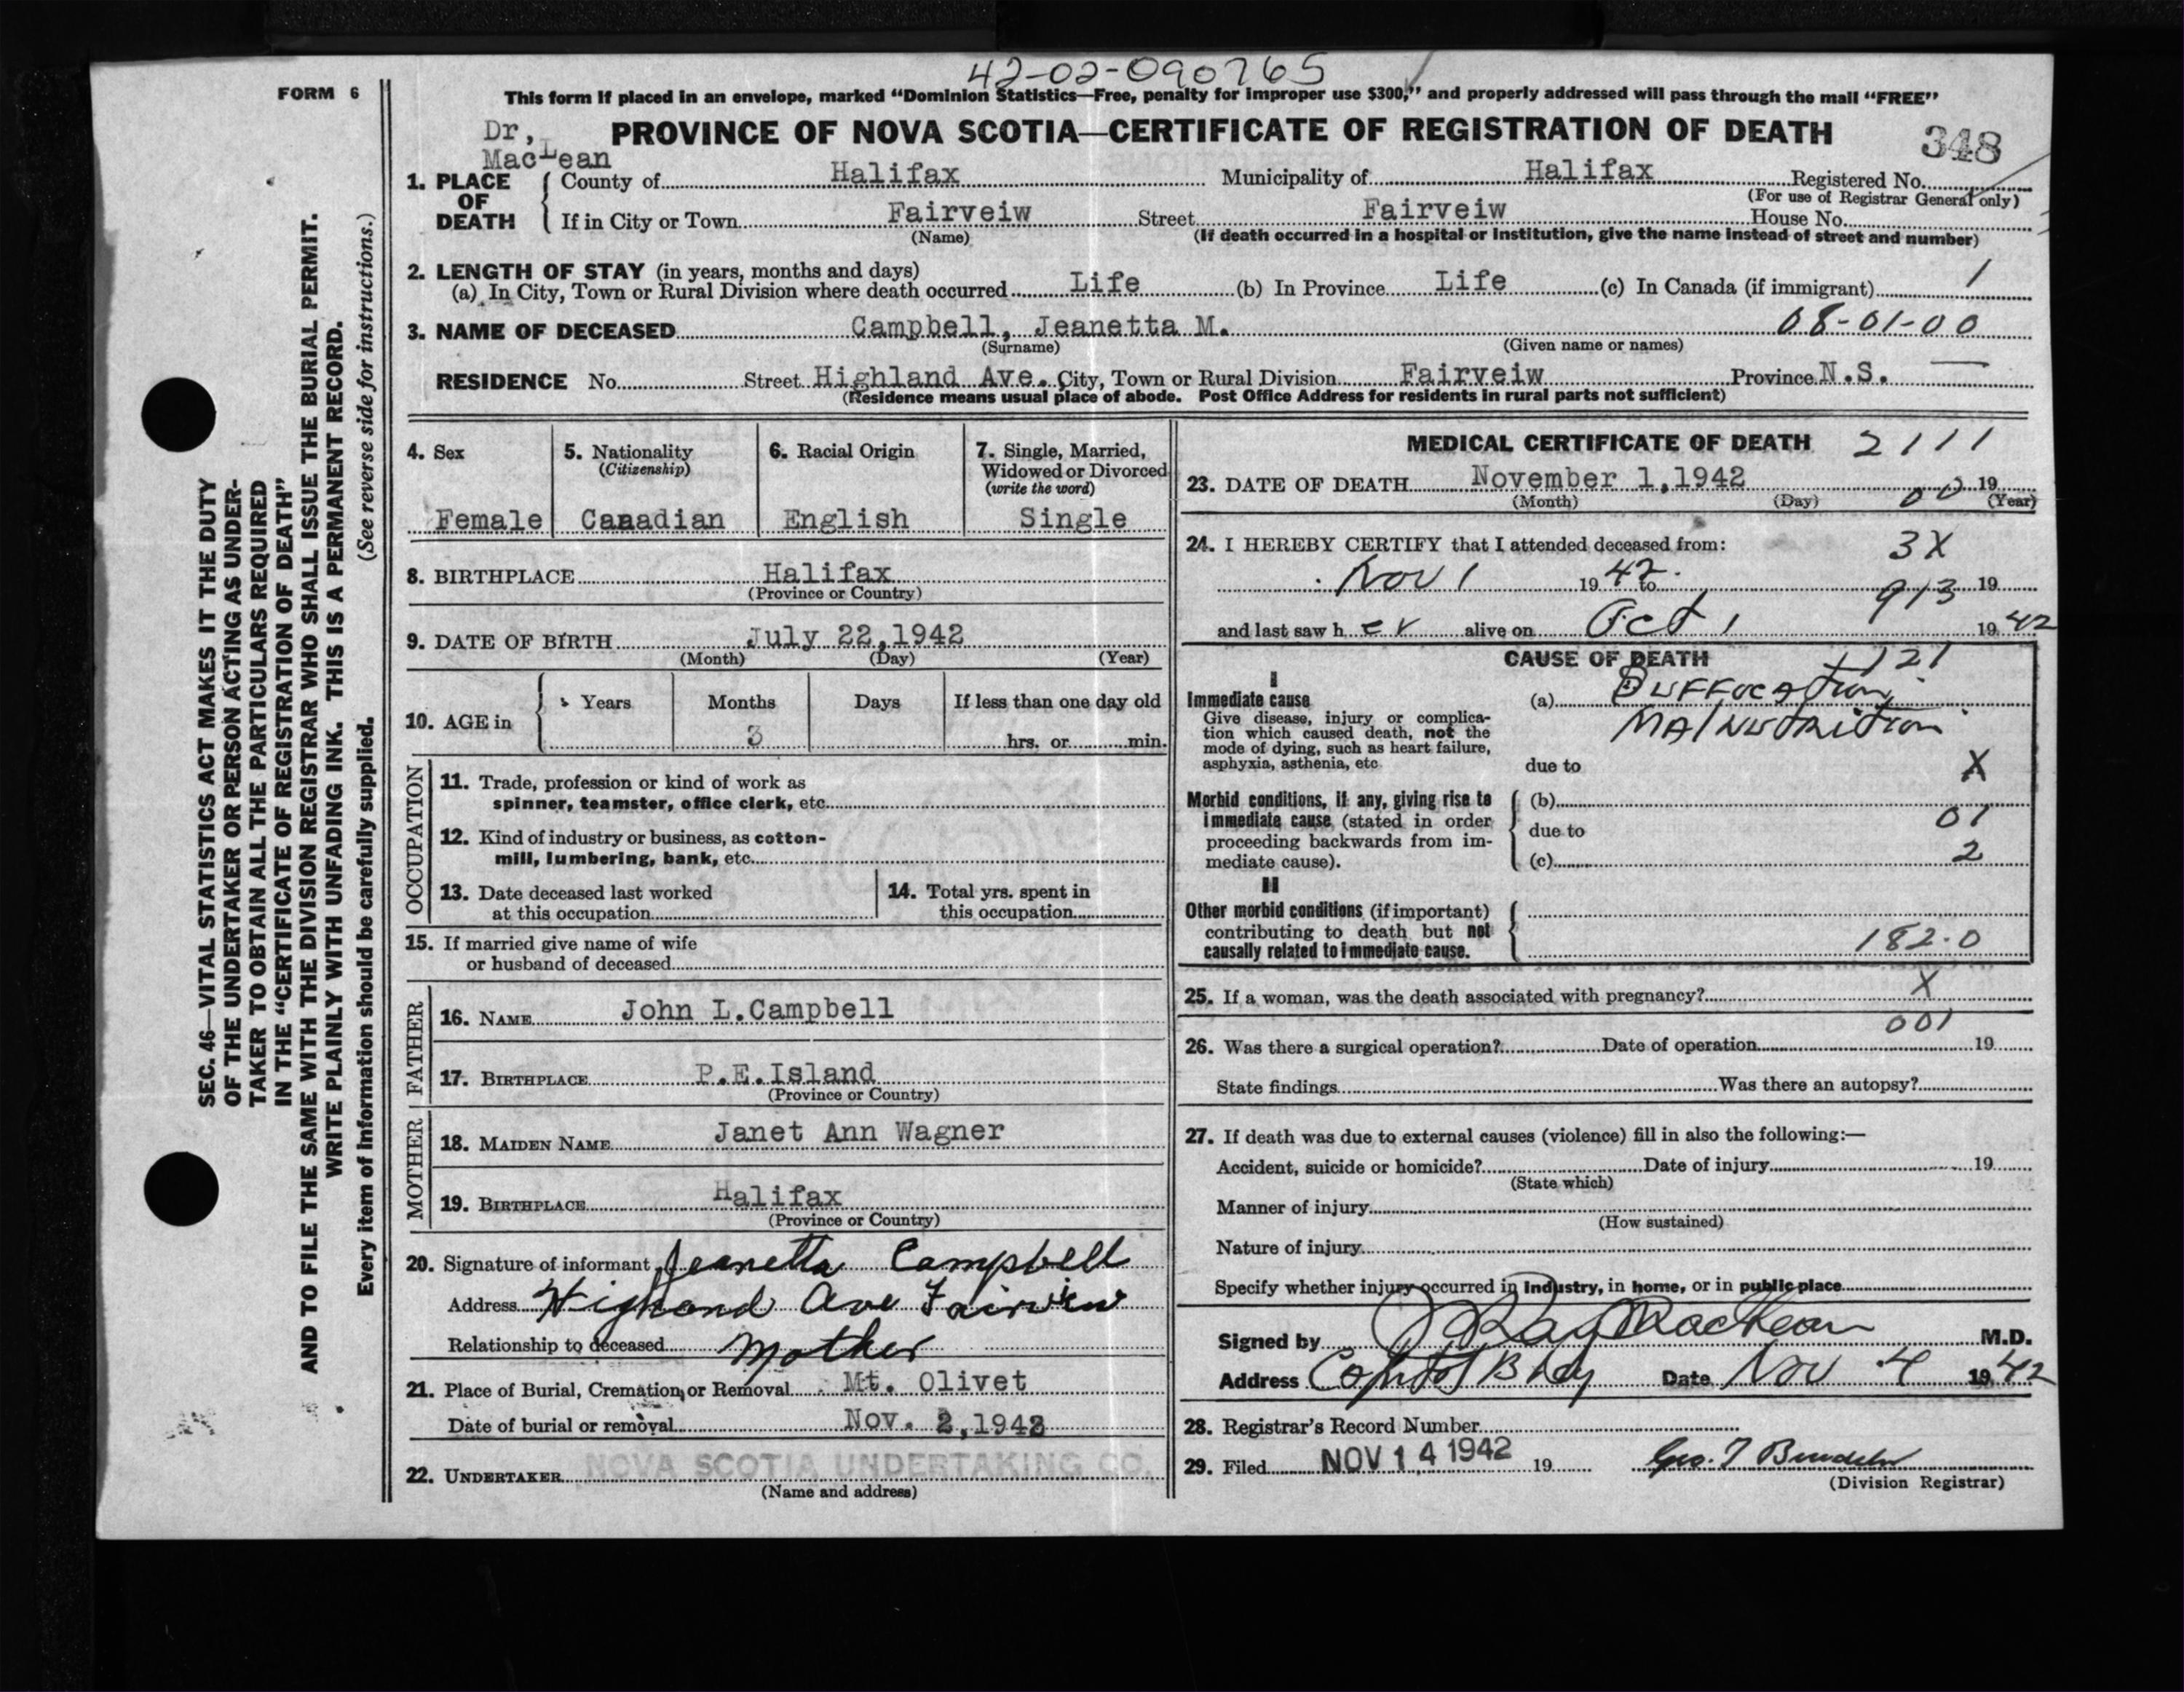 42-02-090765
FORM 6
This form if placed in an envelope, marked “Dominion Statistics—Free, penalty for improper use $300,” and properly addressed will pass through the mail “FREE”
Dr,
MacLean
PROVINCE OF NOVA SCOTIA—CERTIFICATE OF REGISTRATION OF DEATH
348
1. PLACE OF DEATH
County of Halifax Municipality of Halifax Registered No.
(For use of Registrar General only)
If in City or Town Fairveiw Street Fairveiw House No.
(Name) (If death occurred in a hospital or institution, give the name instead of street and number)
2. LENGTH OF STAY (in years, months and days)
(a) In City, Town or Rural Division where death occurred Life (b) In Province Life (c) In Canada (if immigrant) 1
3. NAME OF DECEASED Campbell, Jeanetta M. 08-01-00
(Surname) (Given name or names)
RESIDENCE No. Street Highland Ave. City, Town or Rural Division Fairveiw Province N.S. —
(Residence means usual place of abode. Post Office Address for residents in rural parts not sufficient)
4. Sex
Female
5. Nationality
(Citizenship)
Canadian
6. Racial Origin
English
7. Single, Married,
Widowed or Divorced
(write the word)
Single
8. BIRTHPLACE Halifax
(Province or Country)
9. DATE OF BIRTH July 22,1942
(Month) (Day) (Year)
10. AGE in
Years Months Days If less than one day old
3 hrs. or min.
OCCUPATION
11. Trade, profession or kind of work as
spinner, teamster, office clerk, etc.
12. Kind of industry or business, as cotton-
mill, lumbering, bank, etc.
13. Date deceased last worked
at this occupation
14. Total yrs. spent in
this occupation
15. If married give name of wife
or husband of deceased
FATHER
16. NAME John L.Campbell
17. BIRTHPLACE P.E.Island
(Province or Country)
MOTHER
18. MAIDEN NAME Janet Ann Wagner
19. BIRTHPLACE Halifax
(Province or Country)
20. Signature of informant Jeanetta Campbell
Address Highland Ave Fairview
Relationship to deceased mother
21. Place of Burial, Cremation or Removal Mt. Olivet
Date of burial or removal Nov. 2,1942
22. UNDERTAKER NOVA SCOTIA UNDERTAKING CO.
(Name and address)
MEDICAL CERTIFICATE OF DEATH 2111
23. DATE OF DEATH November 1,1942 00 19
(Month) (Day) (Year)
24. I HEREBY CERTIFY that I attended deceased from: 3X
Nov 1 19 42 to 913 19
and last saw h er alive on Oct 1 19 42
CAUSE OF DEATH
121
I
Immediate cause
Give disease, injury or complica-
tion which caused death, not the
mode of dying, such as heart failure,
asphyxia, asthenia, etc
(a) Suffocation
Malnutrition
due to X
Morbid conditions, if any, giving rise to
immediate cause (stated in order
proceeding backwards from im-
mediate cause).
(b)
due to 01
(c) 2
II
Other morbid conditions (if important)
contributing to death but not
causally related to immediate cause.
182.0
25. If a woman, was the death associated with pregnancy? X
001
26. Was there a surgical operation? Date of operation 19
State findings Was there an autopsy?
27. If death was due to external causes (violence) fill in also the following:—
Accident, suicide or homicide? Date of injury 19
(State which)
Manner of injury
(How sustained)
Nature of injury
Specify whether injury occurred in industry, in home, or in public place
Signed by J Ray MacLean M.D.
Address Date Nov 4 1942
28. Registrar’s Record Number
29. Filed NOV 14 1942 19 Geo. T
(Division Registrar)
SEC. 46—VITAL STATISTICS ACT MAKES IT THE DUTY
OF THE UNDERTAKER OR PERSON ACTING AS UNDER-
TAKER TO OBTAIN ALL THE PARTICULARS REQUIRED
IN THE “CERTIFICATE OF REGISTRATION OF DEATH”
AND TO FILE THE SAME WITH THE DIVISION REGISTRAR WHO SHALL ISSUE THE BURIAL PERMIT.
WRITE PLAINLY WITH UNFADING INK. THIS IS A PERMANENT RECORD.
Every item of information should be carefully supplied. (See reverse side for instructions.)